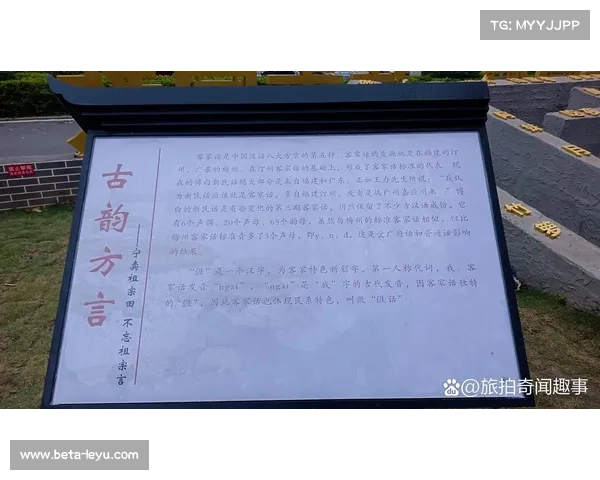 TG: MYYJJPP
古韵方言
——宁卖祖宗田 不忘祖宗言
客家话是中国汉语八大方言的第五种。客家话的发源地是在福建的汀
州，广东的梅州。在汀州客家话的基础上，形成了客家话标准的代表。现
在的博白新民话绝大部分是来自福建和广东。正如王力先生所说："我认
为新民话应该就是客家话，多自福建汀州，或者是从广州嘉应州来。"博
白的新民话是有些变化的第三期客家话，仍然保留了不少古汉语成份。它
有6个声调，20个声母，65个韵母，虽然与梅州的标准客家话相似，但比
梅州客家话标准音多了3个声母，即v、n、d，这是受广府话和普通话影响
的结果。
"𠊎"是一个汉字，为客家特色新创字，第一人称代词，我。客
家话发音"ngai"，"ngai"是"我"字的古代发音，因客家话独特
的"𠊎"，因此客家话也体现民系特色，叫做"𠊎话"。
禁止攀爬
@旅拍奇闻趣事
www.beta-leyu.com